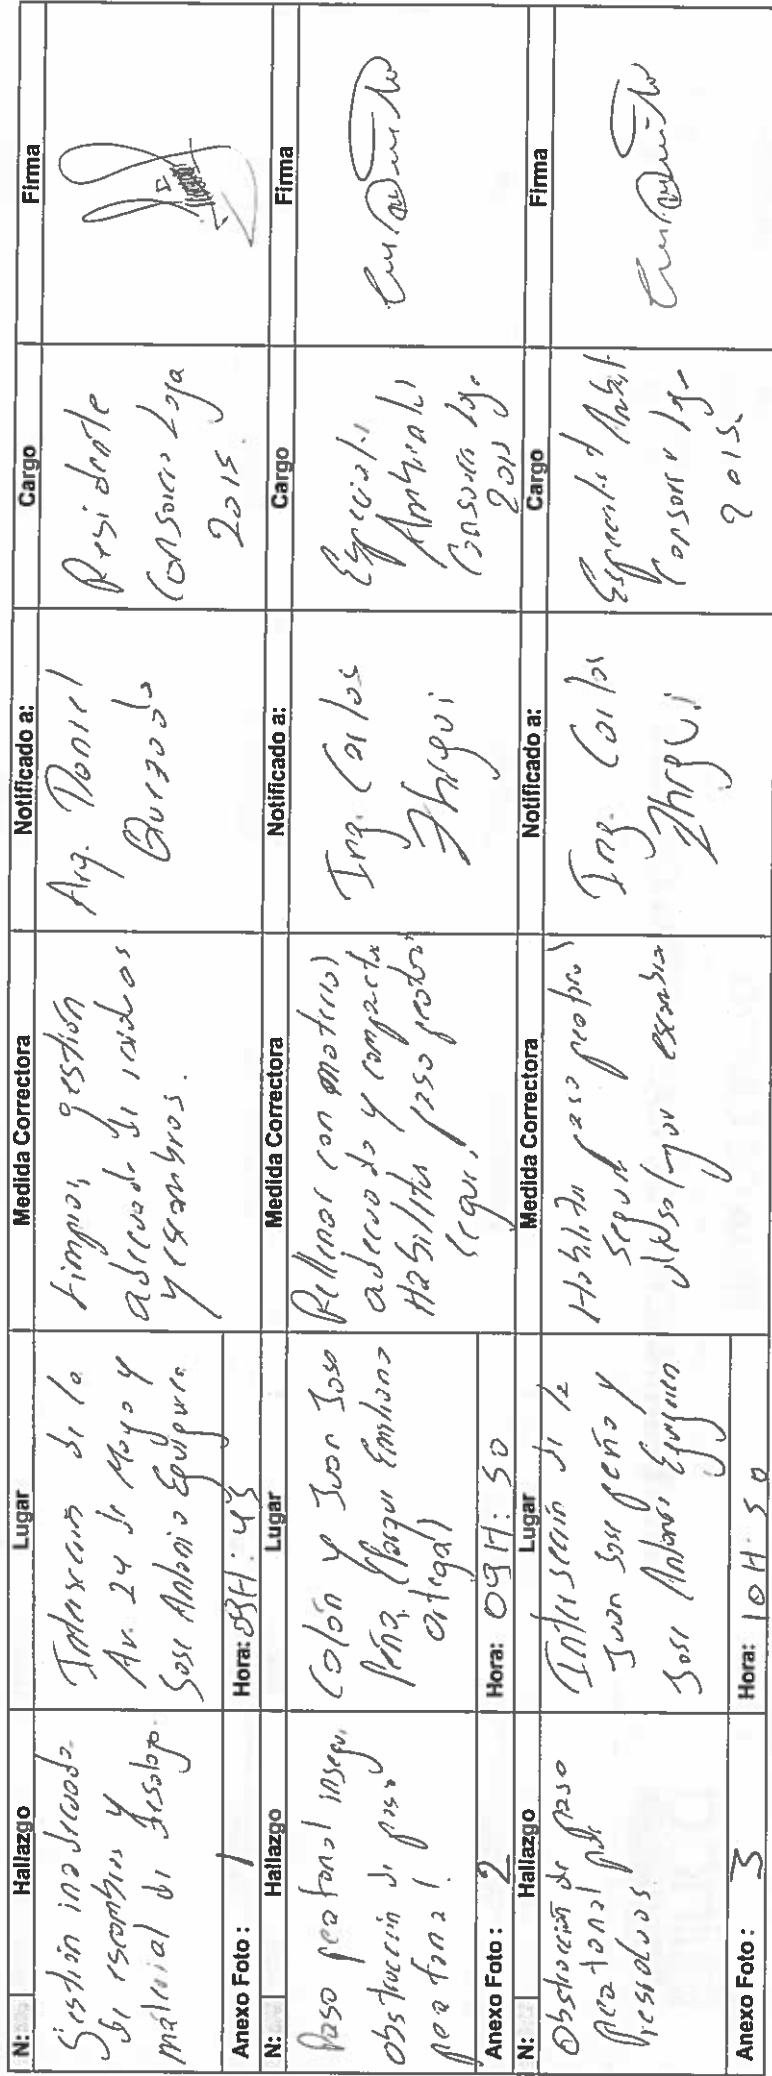 N: Hallazgo Lugar Medida Correctora Notificado a: Cargo Firma
Gestión inadecuada
de escombros y
material de desalojo.
Anexo Foto: 1
Intersección de la
Av. 24 de Mayo y
Jose Antonio Eguiguren
Hora: 09H:45
Limpiar, gestión
adecuada de residuos
y escombros.
Arq. Daniel
Quezada
Residente
Consorcio Loja
2015.
N: Hallazgo Lugar Medida Correctora Notificado a: Cargo Firma
Paso peatonal insegu.
obstrucción de paso
peatonal.
Anexo Foto: 2
Colón y Juan Jose
Peña (Parque Emiliano
Ortega)
Hora: 09H:50
Rellenar con material
adecuado y compactar
Habilitar paso peatonal
segur.
Ing. Carlos
Zhigui
Especialis
Ambiental
Consorcio Loja
2015
N: Hallazgo Lugar Medida Correctora Notificado a: Cargo Firma
Obstrucción de paso
peatonal por
residuos
Anexo Foto: 3
Intersección de la
Juan Jose Peña y
Jose Antonio Eguiguren
Hora: 10H:50
Habilitar paso peatonal
seguro
desalojar escombros
Ing. Carlos
Zhigui
Especialist Ambit.
Consorcio Loja
2015.